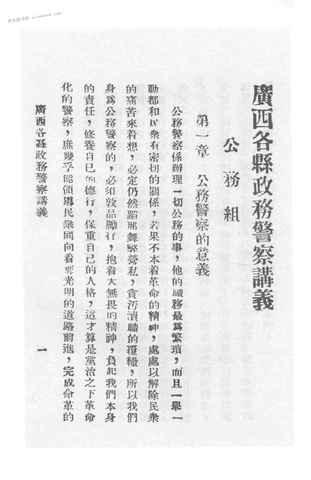 廣西各縣政務警察講義
公務組
第一章 公務警察的意義
公務警察係辦理一切公務的事,他的職務最爲繁瑣,而且一舉一
動都和民衆有密切的關係,若果不本着革命的精神,處處以解除民衆
的痛苦來着想,必定仍然蹈那舞弊營私,貪污瀆職的覆轍,所以我們
身爲公務警察的,必須敦品勵行,抱着大無畏的精神,負起我們本身
的責任,修養自己的德行,保重自己的人格,這才算是黨治之下革命
化的警察,庶幾乎能領導民衆向着光明的道路前進,完成命革的
廣西各縣政務警察講義
一